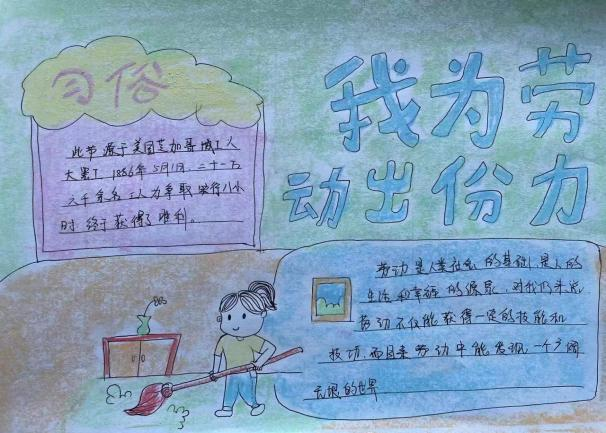 习俗
此节源于美国芝加哥城工人
大罢工 1886年5月1日,二十一万
六千余名工人为争取实行八小
时终于获得了胜利。
我为劳
动出份力
劳动是人类社会的基础,是人的
生活和幸福的源泉,对我们来说
劳动不仅能获得一定的技能和
技巧,而且来劳动中能发现一个广阔
无垠的世界